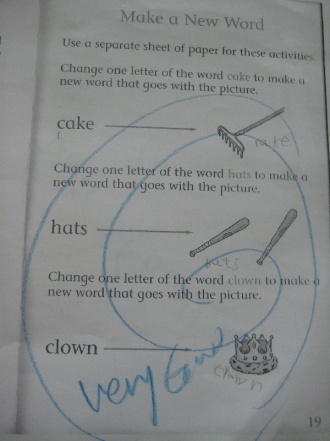 Make a New Word
Use a separate sheet of paper for these activities.
Change one letter of the word cake to make a
new word that goes with the picture.
cake
rake
Change one letter of the word hats to make a
new word that goes with the picture.
hats
bats
Change one letter of the word clown to make a
new word that goes with the picture.
clown
clown
very Good
19